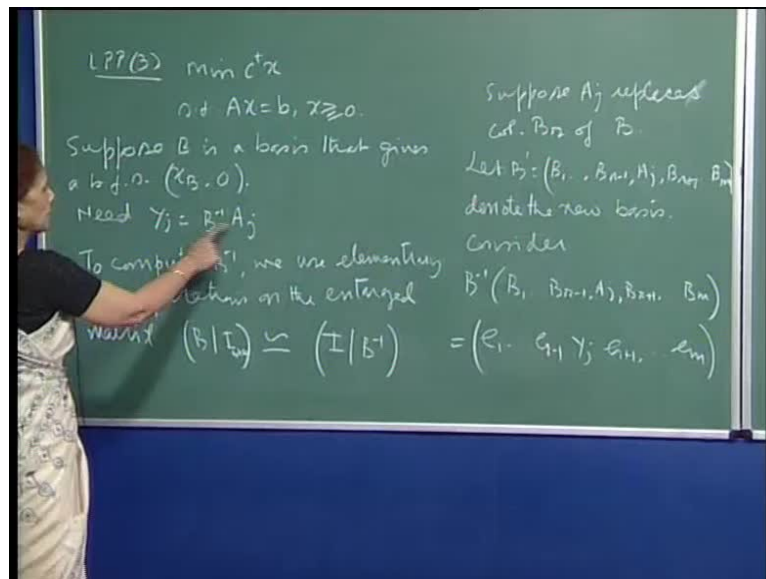 LPP(3) min cᵗx
s.t Ax=b, x≥0.
Suppose B is a basis that gives
a b.f.s. (x_B, 0).
Need Yj = B⁻¹Aj
To compute B⁻¹, we use elementary
on the enlarged
matrix (B|I) ≃ (I|B⁻¹)
Suppose Aj replaces
col. Br of B.
Let B' = (B1 . . , Br-1, Aj, Br+1, Bm)
denote the new basis.
Consider
B⁻¹(B1. Br-1, Aj, Br+1. Bm)
= (e1.. er-1 Yj er+1, ... em)